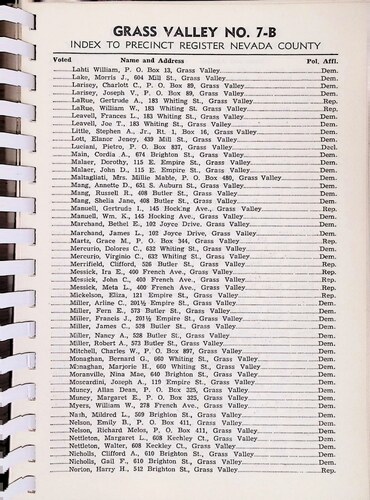 GRASS VALLEY NO. 7-B
INDEX TO PRECINCT REGISTER NEVADA COUNTY
Voted Name and Address Pol. Affl.
Lahti William, P. O. Box 13, Grass Valley Dem.
Lake, Morris J., 604 Mill St., Grass Valley Dem.
Larisey, Charlott C., P. O. Box 89, Grass Valley Dem.
Larisey, Joseph V., P. O. Box 89, Grass Valley Dem.
LaRue, Gertrude A., 183 Whiting St., Grass Valley Rep.
LaRue, William H., 183 Whiting St., Grass Valley Rep.
Leavell, Frances L., 183 Whiting St., Grass Valley Dem.
Leavell, Joe T., 183 Whiting St., Grass Valley Dem.
Little, Stephen A., Jr., Rt. 1, Box 16, Grass Valley Dem.
Lott, Elanor Jeney, 439 Mill St., Grass Valley Dem.
Luciani, Pietro, P. O. Box 837, Grass Valley Decl.
Main, Cordia A., 674 Brighton St., Grass Valley Dem.
Malaer, Dorothy, 115 E. Empire St., Grass Valley Dem.
Malaer, John D., 115 E. Empire St., Grass Valley Dem.
Maltagliati, Mrs. Millie Mable, P. O. Box 480, Grass Valley Dem.
Mang, Annette D., 651 S. Auburn St., Grass Valley Dem.
Mang, Russell R., 408 Butler St., Grass Valley Dem.
Mang, Shelia Jane, 408 Butler St., Grass Valley Dem.
Manuell, Gertrude I., 145 Hocking Ave., Grass Valley Rep.
Manuell, Wm. K., 145 Hocking Ave., Grass Valley Dem.
Marchand, Bethel E., 102 Joyce Drive. Grass Valley Dem.
Marchand, James L., 102 Joyce Drive, Grass Valley Dem.
Martz, Grace M., P. O. Box 344, Grass Valley Rep.
Mercurio, Dolores C., 632 Whiting St., Grass Valley Dem.
Mercurio, Virginio C., 632 Whiting St., Grass Valley Dem.
Merrifield, Clifford, 526 Butler St., Grass Valley Dem.
Messick, Ira E., 400 French Ave., Grass Valley Rep.
Messick, John C., 400 French Ave., Grass Valley Rep.
Messick, Meta L., 400 French Ave., Grass Valley Rep.
Mickelson, Eliza, 121 Empire St., Grass Valley Rep.
Miller, Arline C., 201½ Empire St., Grass Valley Dem.
Miller, Fern E., 573 Butler St., Grass Valley Dem.
Miller, Francis J., 201½ Empire St., Grass Valley Dem.
Miller, James C., 528 Butler St., Grass Valley Dem.
Miller, Nancy A., 528 Butler St., Grass Valley Dem.
Miller, Robert A., 573 Butler St., Grass Valley Dem.
Mitchell, Charles W., P. O. Box 897, Grass Valley Dem.
Monaghan, Bernard G., 660 Whiting St., Grass Valley Dem.
Monaghan, Marjorie H., 660 Whiting St., Grass Valley Dem.
Moranville, Nina Mae, 640 Brighton St., Grass Valley Dem.
Moscardini, Joseph A., 119 Empire St., Grass Valley Dem.
Muncy, Allan Dean, P. O. Box 325, Grass Valley Dem.
Muncy, Margaret E., P. O. Box 325, Grass Valley Dem.
Myers, William W., 278 French Ave., Grass Valley Dem.
Nash, Mildred L., 569 Brighton St., Grass Valley Dem.
Nelson, Emily B., P. O. Box 411, Grass Valley Dem.
Nelson, Richard Melos, P. O. Box 411, Grass Valley Dem.
Nettleton, Margaret L., 608 Keckley Ct., Grass Valley Dem.
Nettleton, Walter, 608 Keckley Ct., Grass Valley Dem.
Nicholls, Clifford A., 610 Brighton St., Grass Valley Dem.
Nicholls, Gail F., 610 Brighton St., Grass Valley Dem.
Norton, Harry H., 542 Brighton St., Grass Valley Rep.